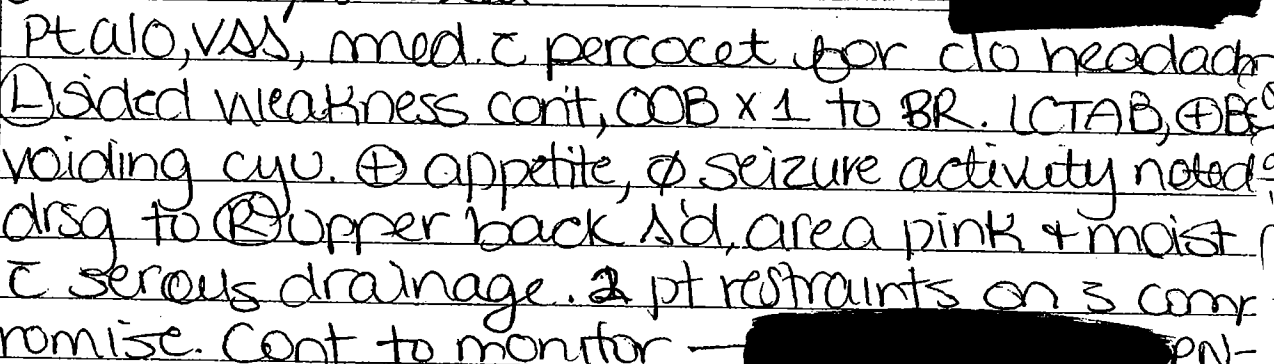 Pt a/o, VSS, med. c̄ percocet for c/o headach
Ⓛ sided weakness cont, OOB x 1 to BR. LCTAB, ⊕BS
voiding cyu. ⊕ appetite, ø seizure activity noted
drsg to Ⓡ upper back Δ'd, area pink + moist
c̄ serous drainage. 2 pt restraints on s̄ comp
romise. Cont to monitor —